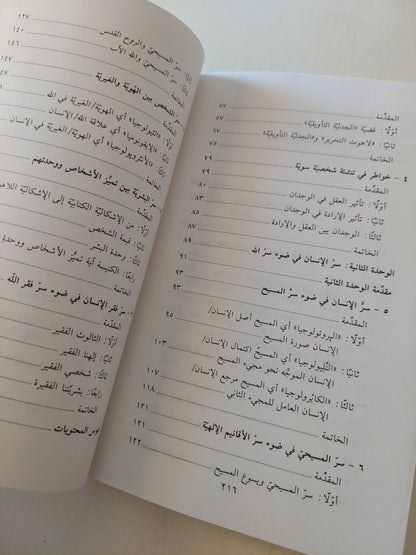 المقدّمة ........ ٥٧
أوّلًا: قضيّة «الجدليّة التأويليّة» ........ ٥٧
ثانيًا: «لاهوت التحرير» و«الجدليّة التأويليّة» ........ ٦٧
الخاتمة ........ ٧٥
٤ - خواطر في تنشئة شخصيّة سويّة ........ ٧٩
المقدّمة ........ ٧٩
أوّلًا: تأثير العقل في الوجدان ........ ٨٠
ثانيًا: تأثير الإرادة في الوجدان ........ ٨٥
ثالثًا: الوجدان بين العقل والإرادة ........ ٨٧
الخاتمة ........
الوحدة الثانية: سرّ الإنسان في ضوء سرّ الله ........ ٩١
مقدّمة الوحدة الثانية ........ ٩١
٥ - سرُّ الإنسان في ضوء سرّ المسيح ........ ٩٣
المقدّمة ........ ٩٣
أوّلًا: «البروتولوجيا» أي المسيح أصل الإنسان/
الإنسان صورة المسيح ........ ٩٥
ثانيًا: «التليولوجيا» أي المسيح اكتمال الإنسان/
الإنسان الموجَّه نحو مجيء المسيح ........ ١٠٣
ثالثًا: «الكايرولوجيا» أي المسيح مرجع الإنسان/
الإنسان العامل للمجيء الثاني ........ ١٠٧
الخاتمة ........ ١١٨
٦ - سرّ المسيحيّ في ضوء سرّ الأقانيم الإلهيّة ........ ١٢١
المقدّمة ........ ١٢١
أوّلًا: سرّ المسيحيّ ويسوع المسيح ........ ١٢٢
٢١٦
ثانيًا: سرّ المسيحيّ والروح القدس ........ ١٢٧
ثالثًا: سرّ المسيحيّ والله الآب ........ ١٤٠
الخاتمة ........ ١٤٦
الشخص بين الهويّة والغيريّة ........ ١٤٧
المقدّمة ........ ١٤٧
أوّلًا: «الثيولوجيا» أي الهويّة/الغيريّة في الله
ثانيًا: «الإيقونوميا» أي علاقة الله/الإنسان
ثالثًا: «الأنثروبولوجيا» أي الهويّة/الغيريّة في الإنسان
الخاتمة
سرّ البشريّة بين تميُّز الأشخاص ووحدتهم
المقدّمة
أوّلًا: من الإشكاليّة الكتابيّة إلى الإشكاليّة
ثانيًا: قيمة الشخص
ثالثًا: وحدة البشر
رابعًا: الكنيسة آية تميُّز الأشخاص ووحدة
الخاتمة
سرّ فقر الإنسان في ضوء سرّ فقر الله
المقدّمة
أوّلًا: الثالوث الفقير
ثانيًا: إلهنا الفقير
ثالثًا: شخصي الفقير
رابعًا: بشريّتنا الفقيرة
الخاتمة
المحتويات